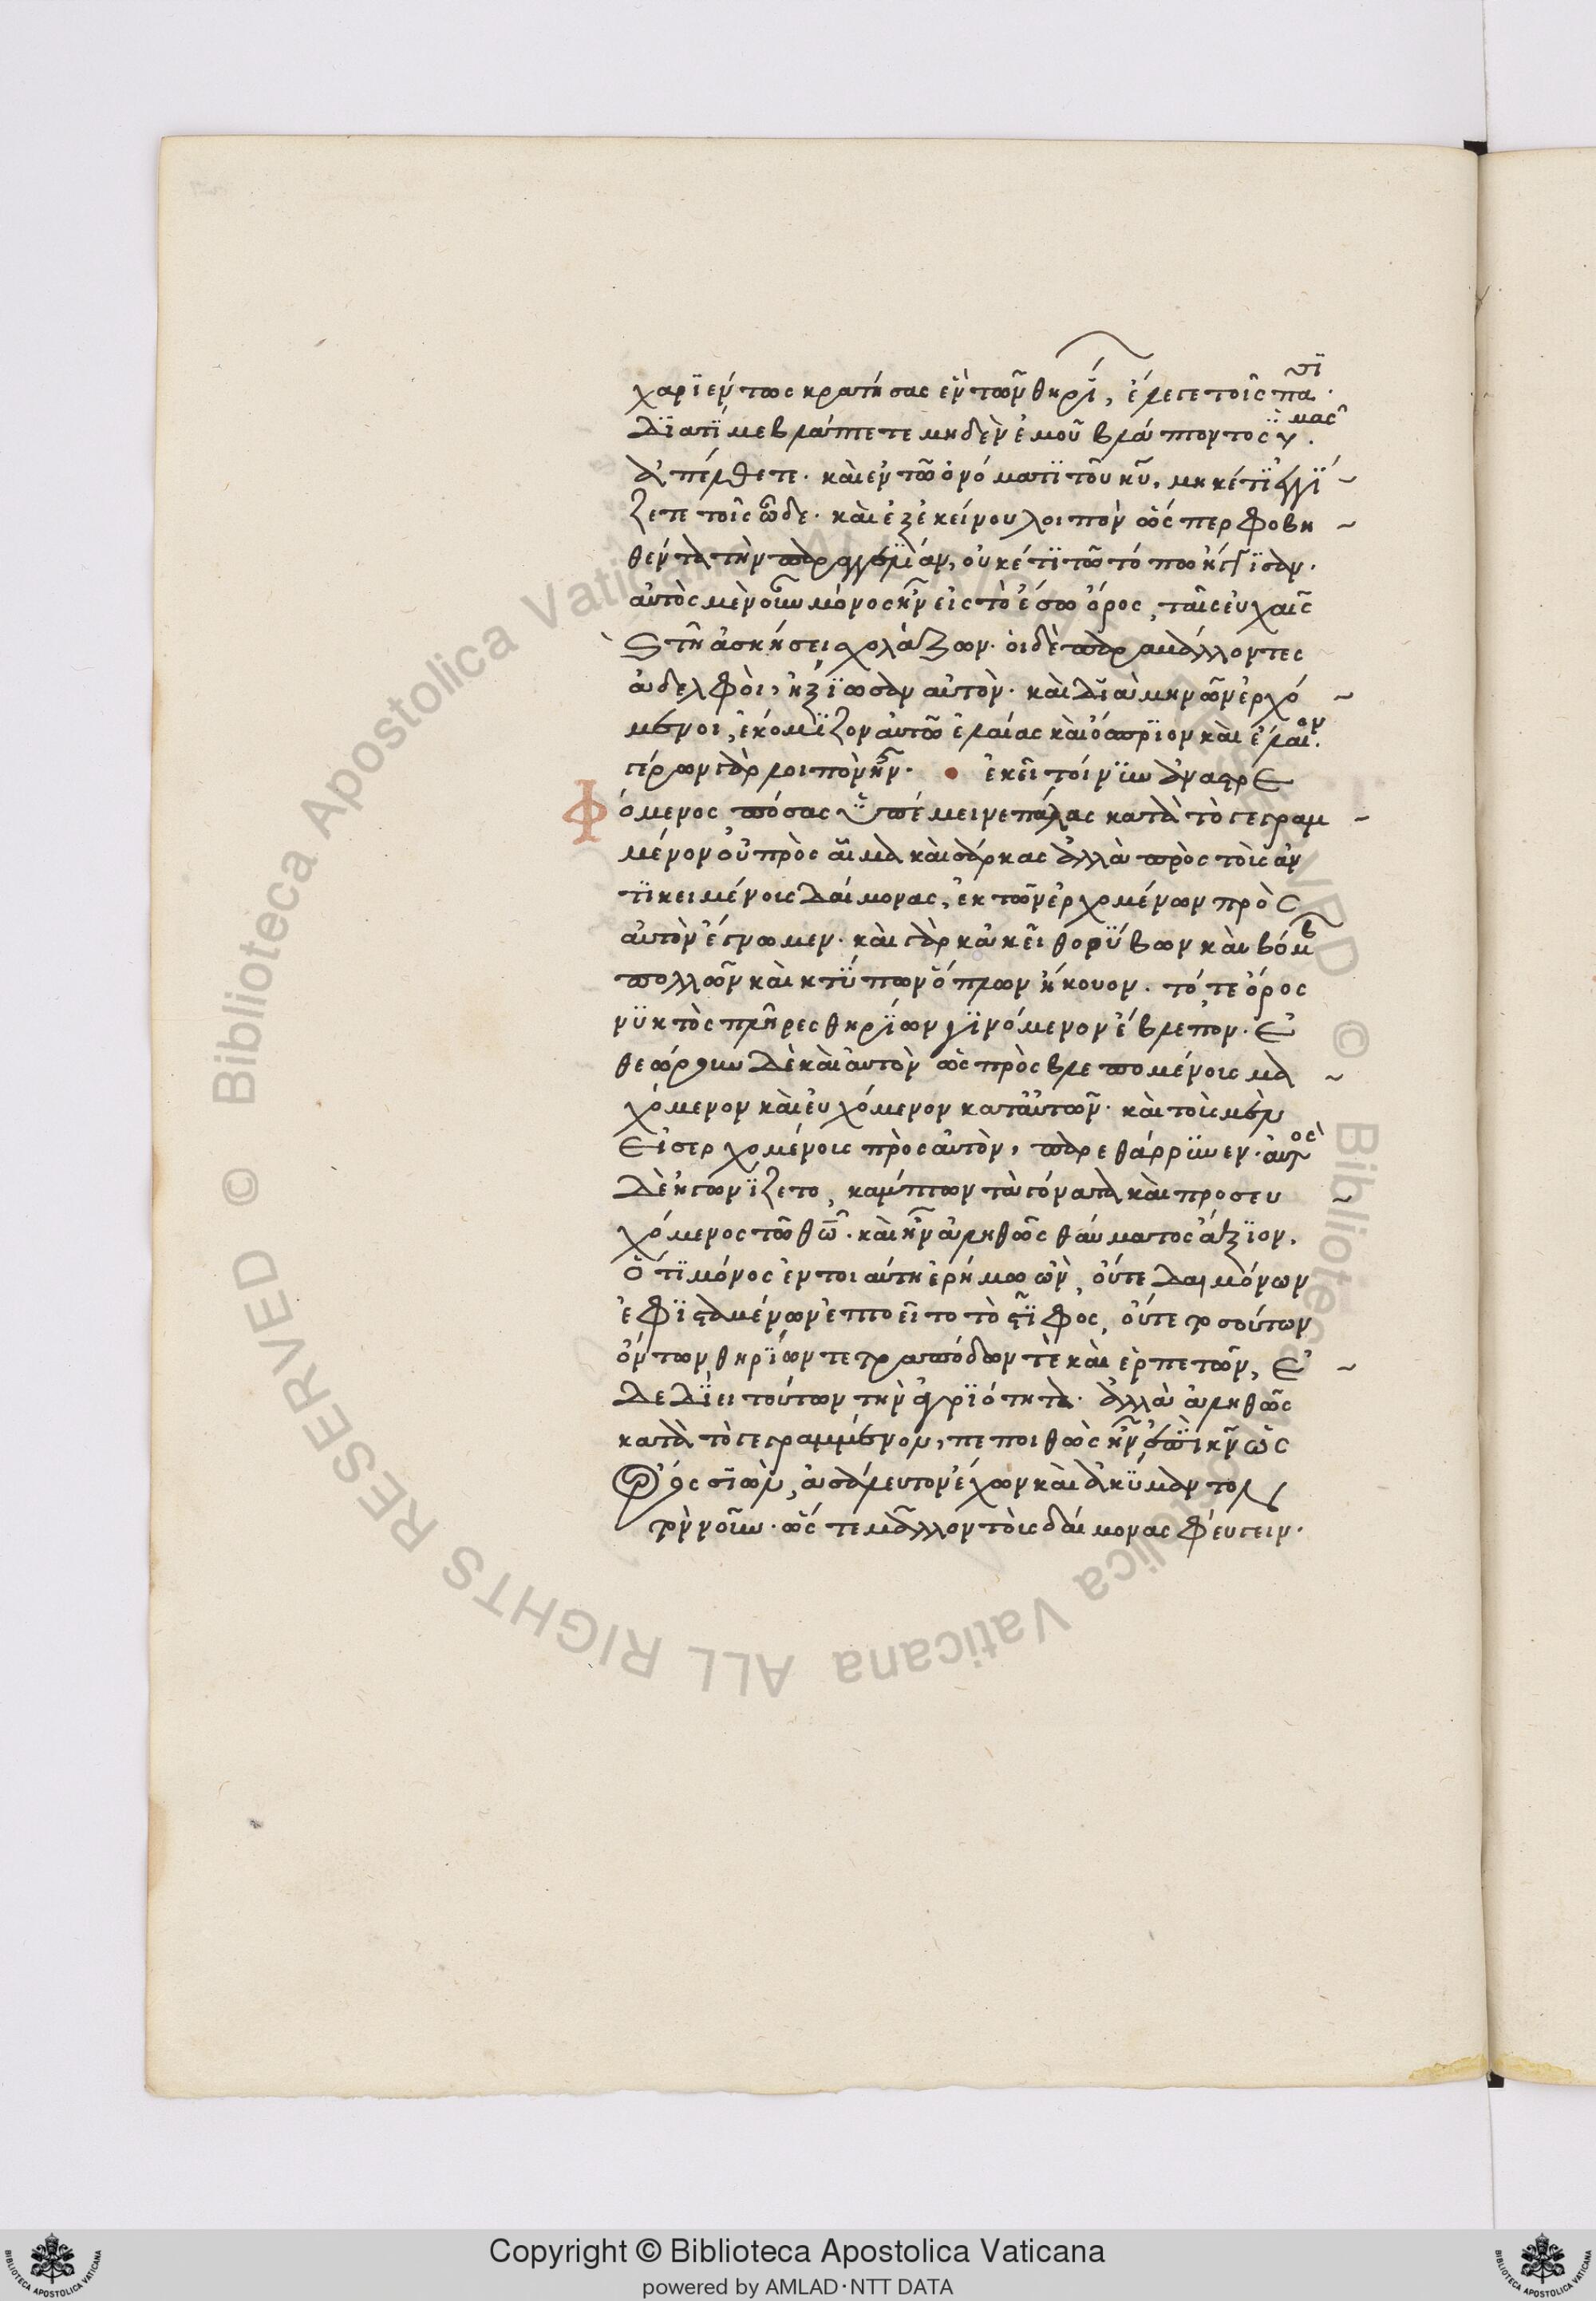 χαριέντως κρατήσας ἓν τῶν θηρί, ἔλεγε τοῖς πᾶσϊ.
Διατί με βλάπτετε μηδὲν ἐμοῦ βλάπτοντος ὑμᾶς.
ἀπέλθετε. καὶ ἐν τῶ ὀνόματι τοῦ κυ, μηκέτι ἐγγί
ζετε τοῖς ὧδε. καὶ ἐξ ἐκείνου λοιπὸν ὥσπερ φοβη
θέντα τὴν παραγγελίαν, οὐκέτι τῶ τόπω ἤγγισαν.
αὐτὸς μὲν οὖν μόνος ἦν εἰς τὸ ἔσω ὄρος, ταῖς εὐχαῖς
ϗ τῆ ἀσκήσει σχολάζων. οἱ δὲ παραμάλλοντες
ἀδελφοὶ, ἠξίωσαν αὐτὸν. καὶ διὰ μηνῶν ἐρχό
μενοι, ἐκόμιζον αὐτῶ ἐλαίας καὶ ὄσπριον καὶ ἔλαιον.
γέρων γὰρ λοιπὸν ἦν. ἐκεῖ τοίνυν ἀναστρε
Φ όμενος πόσας ὑπέμεινε πάλας κατὰ τὸ γεγραμ
μένον οὐ πρὸς αἷμα καὶ σάρκας ἀλλὰ πρὸς τοὺς ἀν
τικειμένους δαίμονας, ἐκ τῶν ἐρχομένων πρὸς
αὐτὸν ἔγνωμεν. καὶ γὰρ κἀκεῖ θορύβων καὶ βόμβ
πολλῶν καὶ κτύπων ὅπλων ἤκουον. τό τε ὄρος
νυκτὸς πλῆρες θηρίων γινόμενον ἔβλεπον. ἐ
θεώρουν δὲ καὶ αὐτὸν ὡς πρὸς βλεπομένους μα
χόμενον καὶ εὐχόμενον κατ αὐτῶν. καὶ τοὺς μὲν
εἰσερχομένους πρὸς αὐτὸν, παρεθάρρυνεν. αὐτὸς
δὲ ἠγωνίζετο, κάμπτων τὰ γόνατα καὶ προσευ
χόμενος τῶ θω. καὶ ἦν ἀληθῶς θαύματος ἄξιον,
ὅτι μόνος ἐν τοιαύτη ἐρήμω ὢν, οὔτε δαιμόνων
ἐφισταμένων ἐπτοεῖτο τὸ στίφος, οὔτε τοσούτων
ὄντων θηρίων τετραπόδων τὲ καὶ ἑρπετῶν, ἐ
δεδίει τούτων τὴν ἀγριότητα. ἀλλὰ ἀληθῶς
κατὰ τὸ γεγραμμένον, πεποιθὼς ἦν ἐπὶ κν ὡς
ὄρος σιὼν, ἀσάλευτον ἔχων καὶ ἀκύμαντον
τὸν νοῦν. ὥστε μᾶλλον τοὺς δαίμονας φεύγειν.